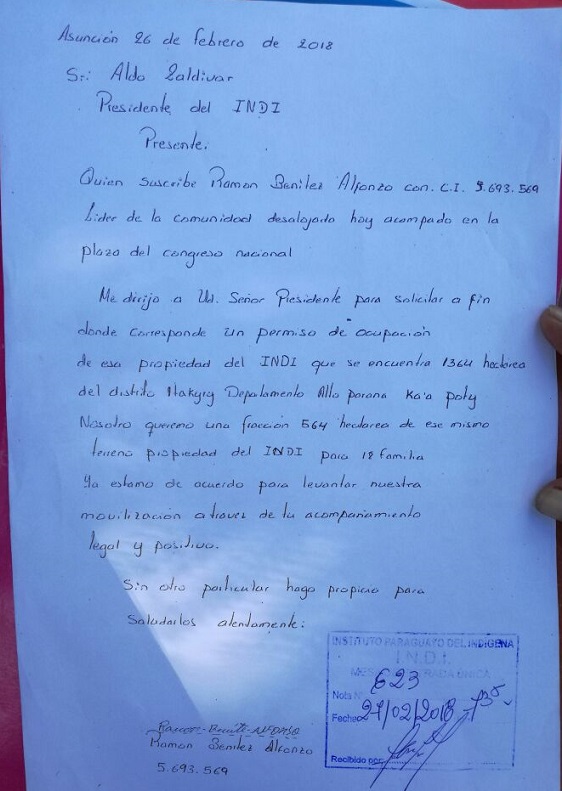 Asunción 26 de febrero de 2018
Sr: Aldo Zaldivar
Presidente del INDI
Presente.
Quien suscribe Ramon Benitez Alfonzo con. C.I. 5.693.569
Lider de la comunidad desalojado hoy acampado en la
plaza del congreso nacional
Me dirijo a Ud. Señor Presidente para solicitar a fin
donde corresponde un permiso de ocupación
de esa propiedad del INDI que se encuentra 1364 hectarea
del distrito Itakyry Departamento Alto parana Ka'a poty
Nosotro queremo una fracción 564 hectarea de ese mismo
terreno propiedad del INDI para 18 familia
Ya estamo de acuerdo para levantar nuestra
movilización a traves de tu acompañamiento
legal y positivo.
Sin otro particular hago propicio para
Saludarlos atentamente:
Ramon Benitez Alfonzo
5.693.569
INSTITUTO PARAGUAYO DEL INDIGENA
I.N.D.I.
MESA DE ENTRADA UNICA
Nota N° 623
Fecha: 27/02/2018
Recibido por: